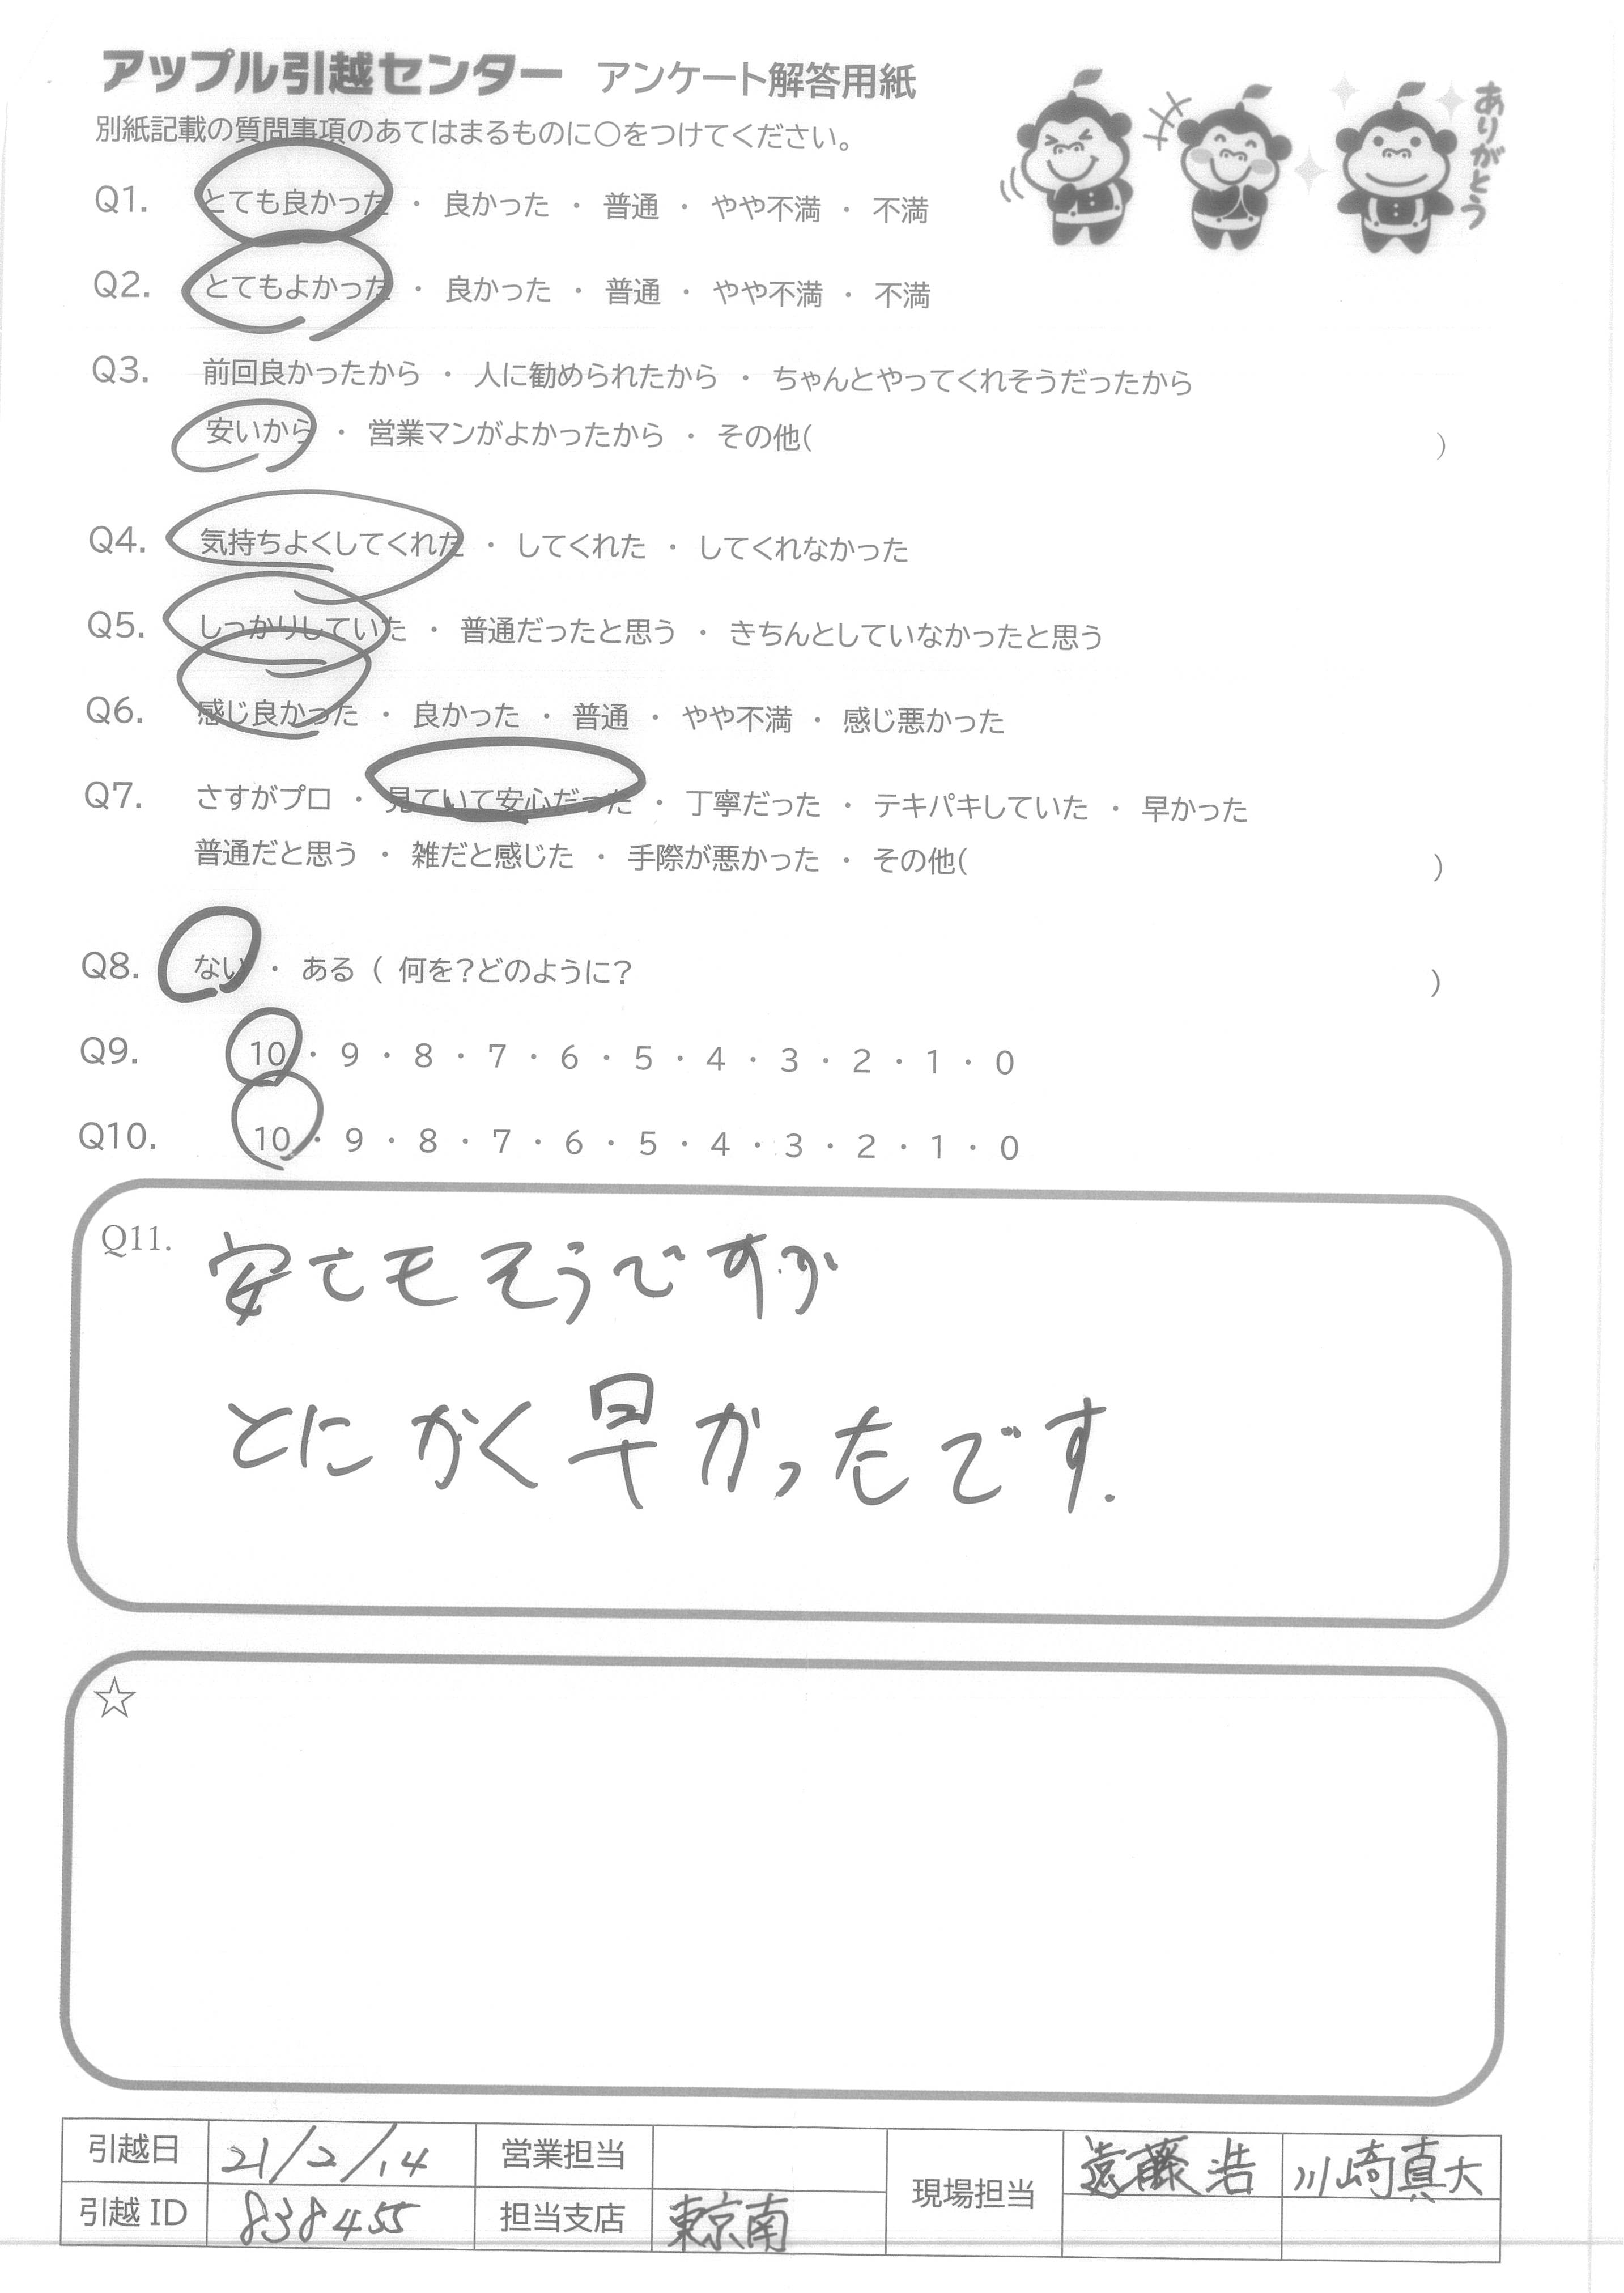 アップル引越センター アンケート解答用紙
ありがとう
別紙記載の質問事項のあてはまるものに○をつけてください。
Q1. とても良かった ・ 良かった ・ 普通 ・ やや不満 ・ 不満
Q2. とてもよかった ・ 良かった ・ 普通 ・ やや不満 ・ 不満
Q3. 前回良かったから ・ 人に勧められたから ・ ちゃんとやってくれそうだったから
安いから ・ 営業マンがよかったから ・ その他( )
Q4. 気持ちよくしてくれた ・ してくれた ・ してくれなかった
Q5. しっかりしていた ・ 普通だったと思う ・ きちんとしていなかったと思う
Q6. 感じ良かった ・ 良かった ・ 普通 ・ やや不満 ・ 感じ悪かった
Q7. さすがプロ ・ 見ていて安心だった ・ 丁寧だった ・ テキパキしていた ・ 早かった
普通だと思う ・ 雑だと感じた ・ 手際が悪かった ・ その他( )
Q8. ない ・ ある ( 何を?どのように? )
Q9. 10 ・ 9 ・ 8 ・ 7 ・ 6 ・ 5 ・ 4 ・ 3 ・ 2 ・ 1 ・ 0
Q10. 10 ・ 9 ・ 8 ・ 7 ・ 6 ・ 5 ・ 4 ・ 3 ・ 2 ・ 1 ・ 0
Q11. 安さもそうですが
とにかく早かったです.
☆
引越日 21/2/14 営業担当 現場担当 遠藤浩 川崎真大
引越 ID 838455 担当支店 東京南